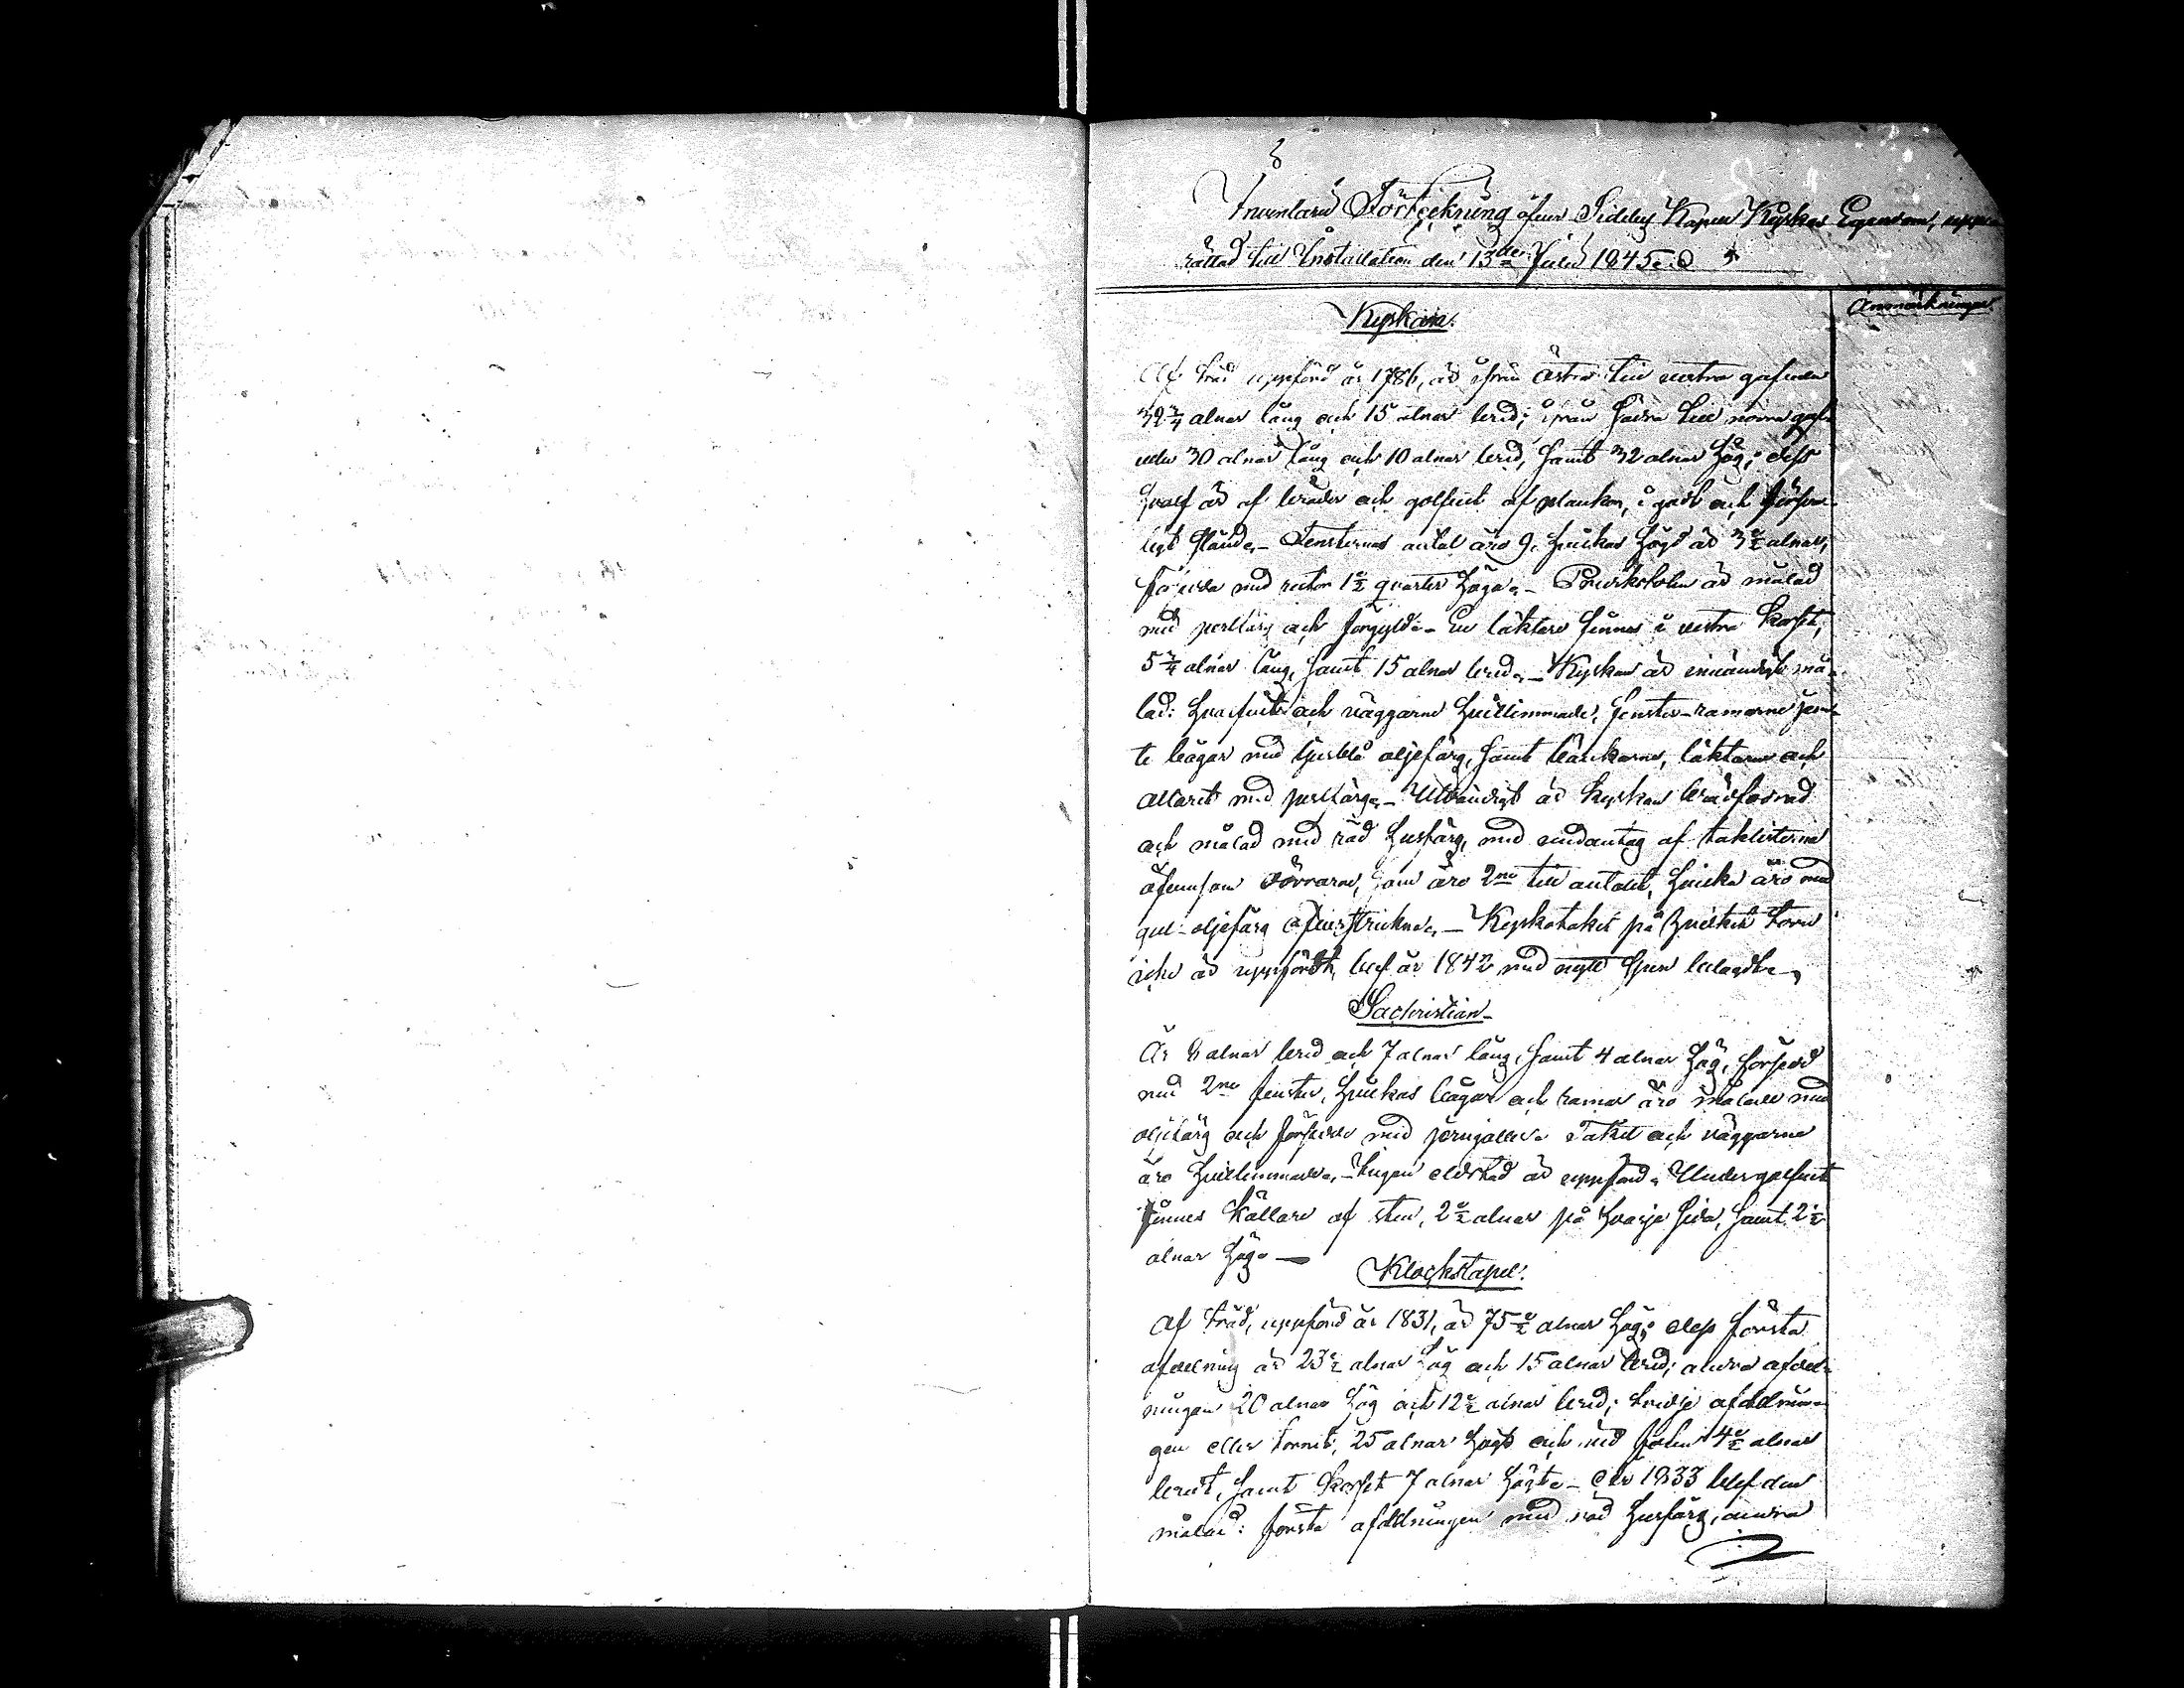 Inventarii Förteckning öfver Sideby Kapell Kyrkas Egendom, uppe-
rättad till Installation den 13de Julii 1845.
Anmärkningar.
Kyrkan.
Af träd uppförd år 1786, är ifrån östra till vestra gafveln
39 3/4 alnar lång och 15 alnar bred; ifrån södra till norra gaf-
veln 30 alnar lång och 10 alnar bred, samt 32 alnar hög; dess
hvalf är af bräder och golfvet af plankor, i godt och försvar-
ligt stånd. Fensternas antal äro 9, hvilkas högd är 3 1/2 alnar,
försedda med rutor 1 1/2 quarter höga. Predikstolen är målad
med perlfärg och förgyld. En läktare finnes i vestra korset,
5 3/4 alnar lång, samt 15 alnar bred. Kyrkan är invändigt må-
lad: hvalfvet och väggarne hvitlimmade, fenster-ramarne jem-
te bågar med ljusblå oljefärg, samt bänkarne, läktaren och
altaret med perlfärg. Utvändigt är kyrkan brädfodrad
och målad med röd husfärg, med undantag af taklisterna
äfvensom dörrarne, som äro 2ne till antalet, hvilka äro med
gul oljefärg öfverstrukne. Kyrkotaket på hvilket torn
icke är uppfördt, blef år 1842 med nytt spån belagdt.
Sachristian
Är 8 alnar bred och 7 alnar lång, samt 4 alnar hög, försedd
med 2ne fenster, hvilkas bågar och ramar äro målade med
oljefärg och försedde med jerngaller. Taket och väggarne
äro hvitlimmade. Ingen eldstad är uppförd. Under golfvet
finnes källare af sten, 2 1/2 alnar på hvarje sida, samt 2 1/2
alnar hög.
Klockstapel.
Af träd, uppförd år 1831, är 75 1/2 alnar hög; dess första
afdelning är 23 1/2 alnar hög och 15 alnar bred; andra afdel-
ningen 20 alnar hög och 12 1/2 alnar bred; tredje afdelnin-
gen eller tornet, 25 alnar högt och vid foten 4 1/2 alnar
bredt, samt korset 7 alnar högt. År 1833 blef den
målad: första afdelningen med röd husfärg, andra